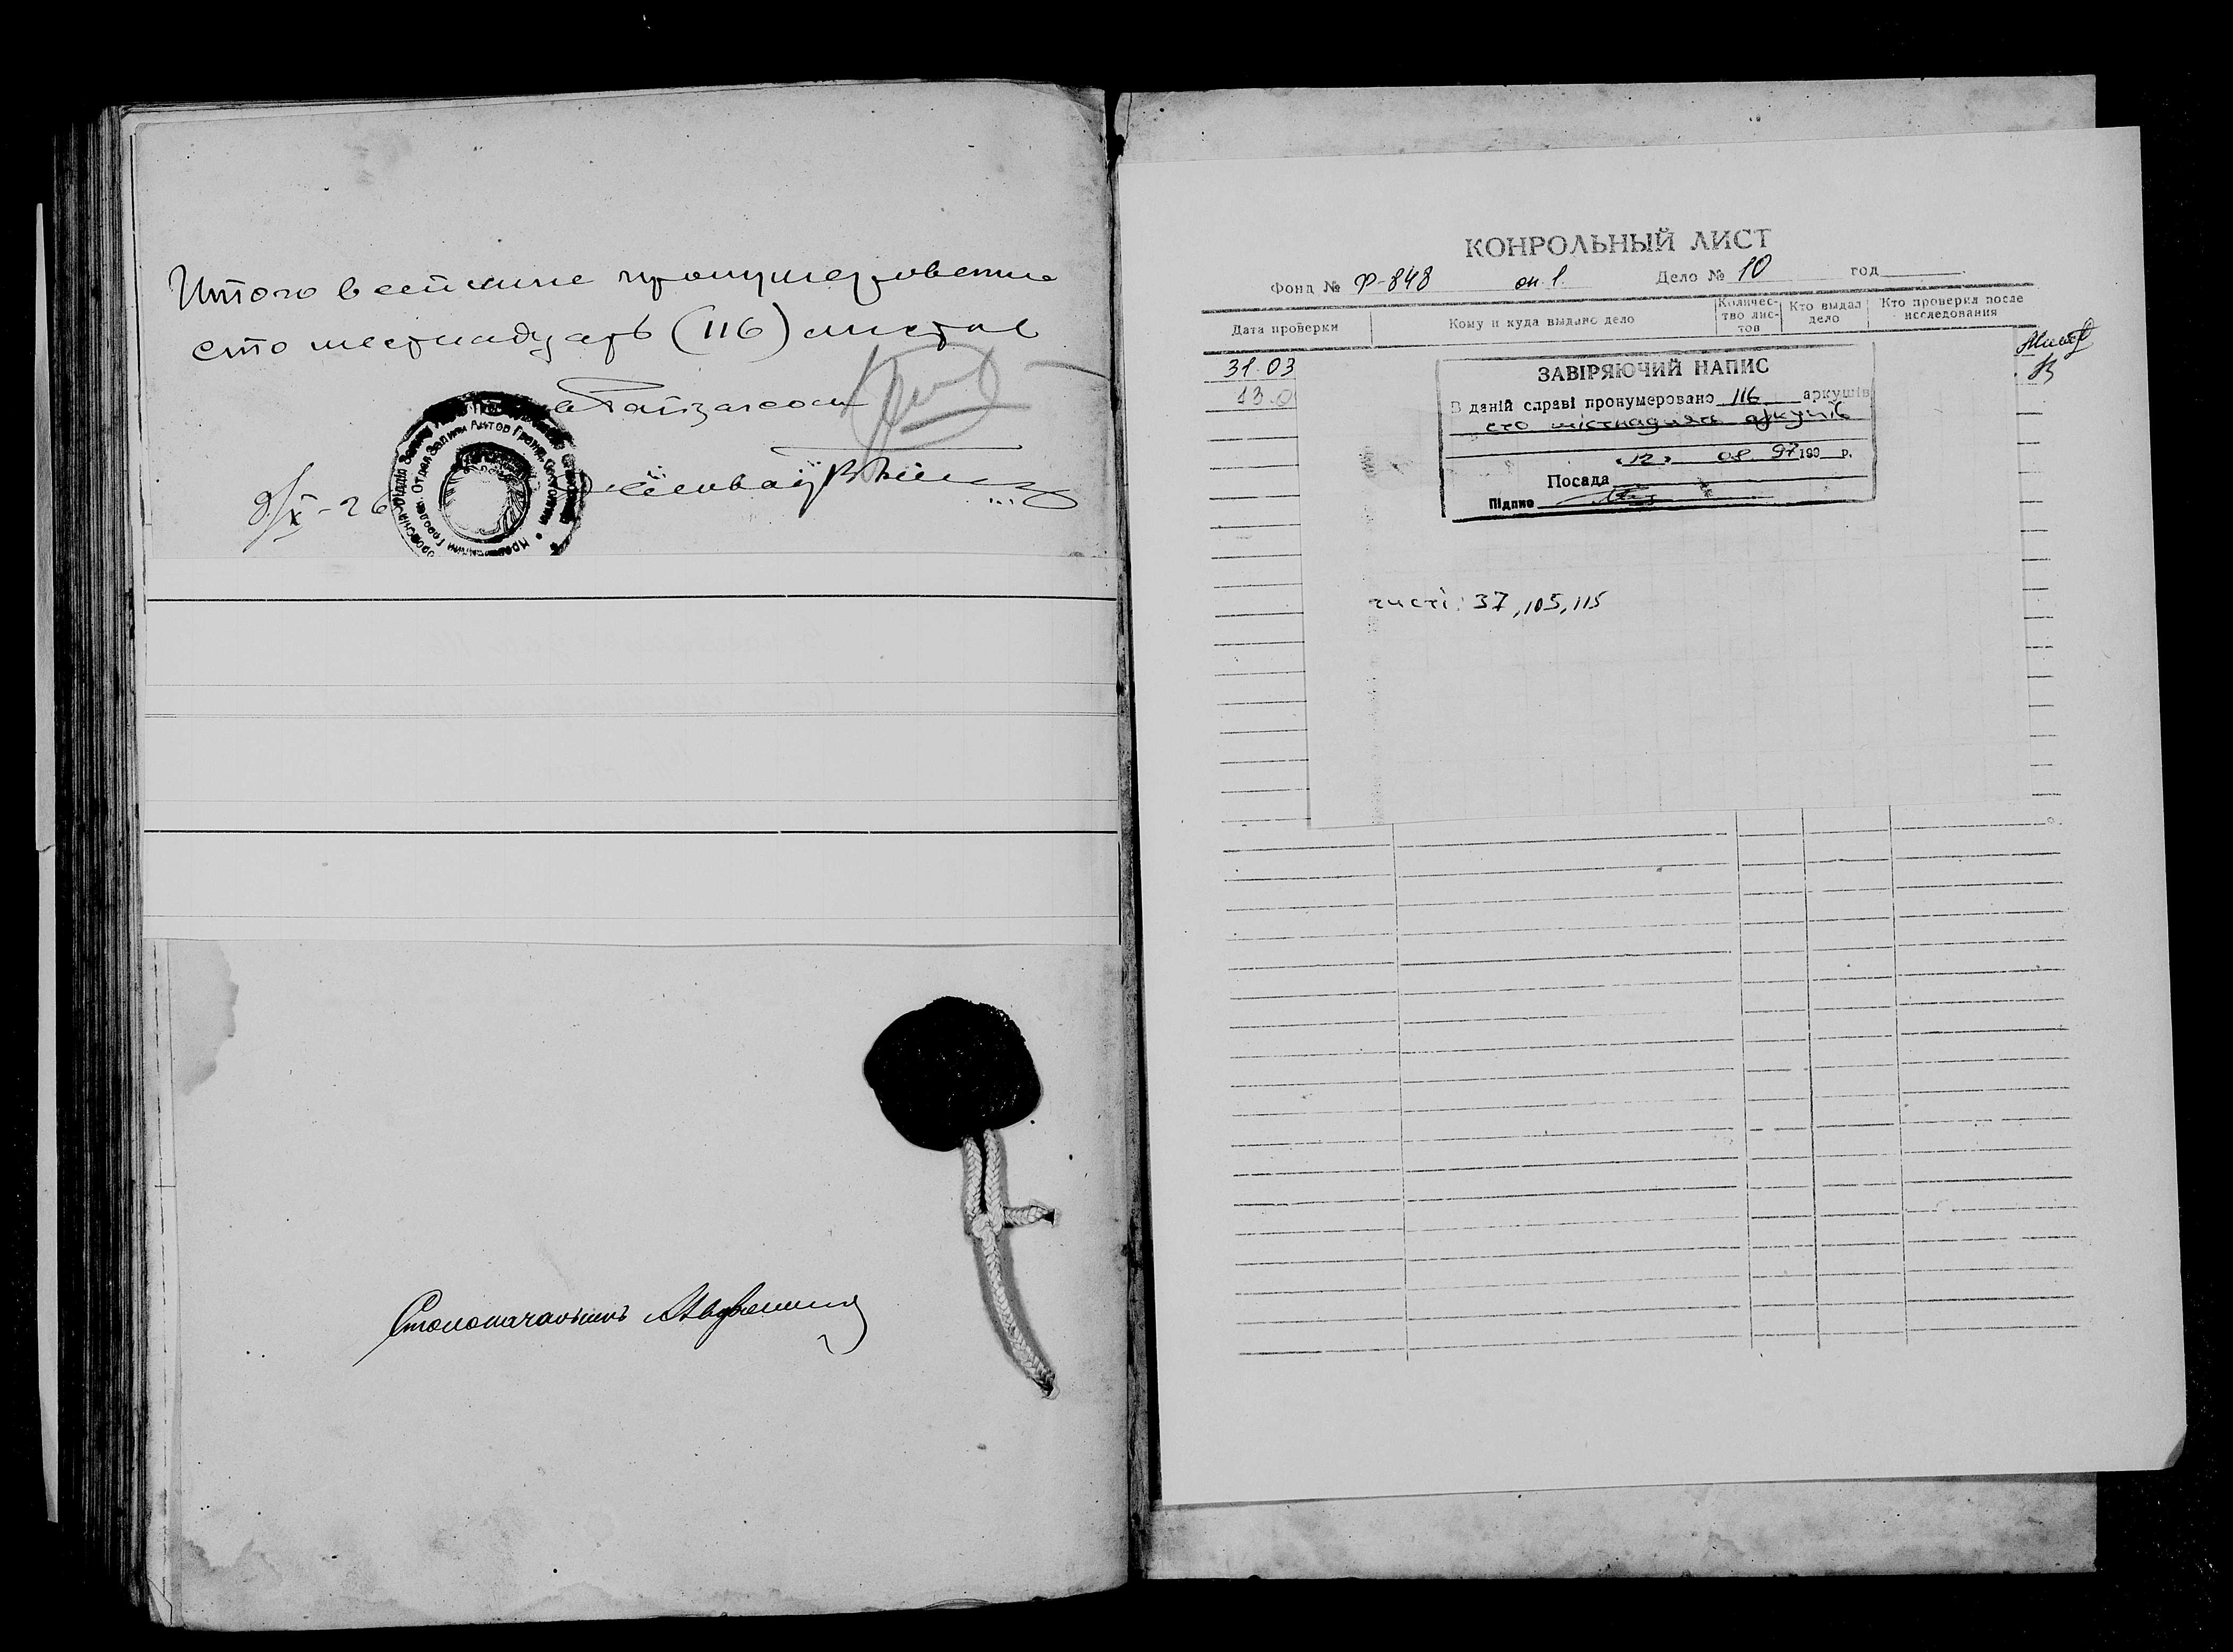 Итого в сей книге пронумерованно
сто шестнадцать (116) листов
9/X-26
Отдел Записи Актов Гражд. Состояния
Столоначальникъ
КОНРОЛЬНЫЙ ЛИСТ
Фонд № Ф-848 оп. 1. Дело № 10 год
Дата проверки Кому и куда выдано дело Количес-тво лис-тов Кто выдал дело Кто проверил после исследования
31.03
13.0
ЗАВІРЯЮЧИЙ НАПИС
В даній справі пронумеровано 116 аркушів
сто шістнадцять аркушів
"12" 08 97 199 р.
Посада
Підпис
чисті: 37, 105, 115